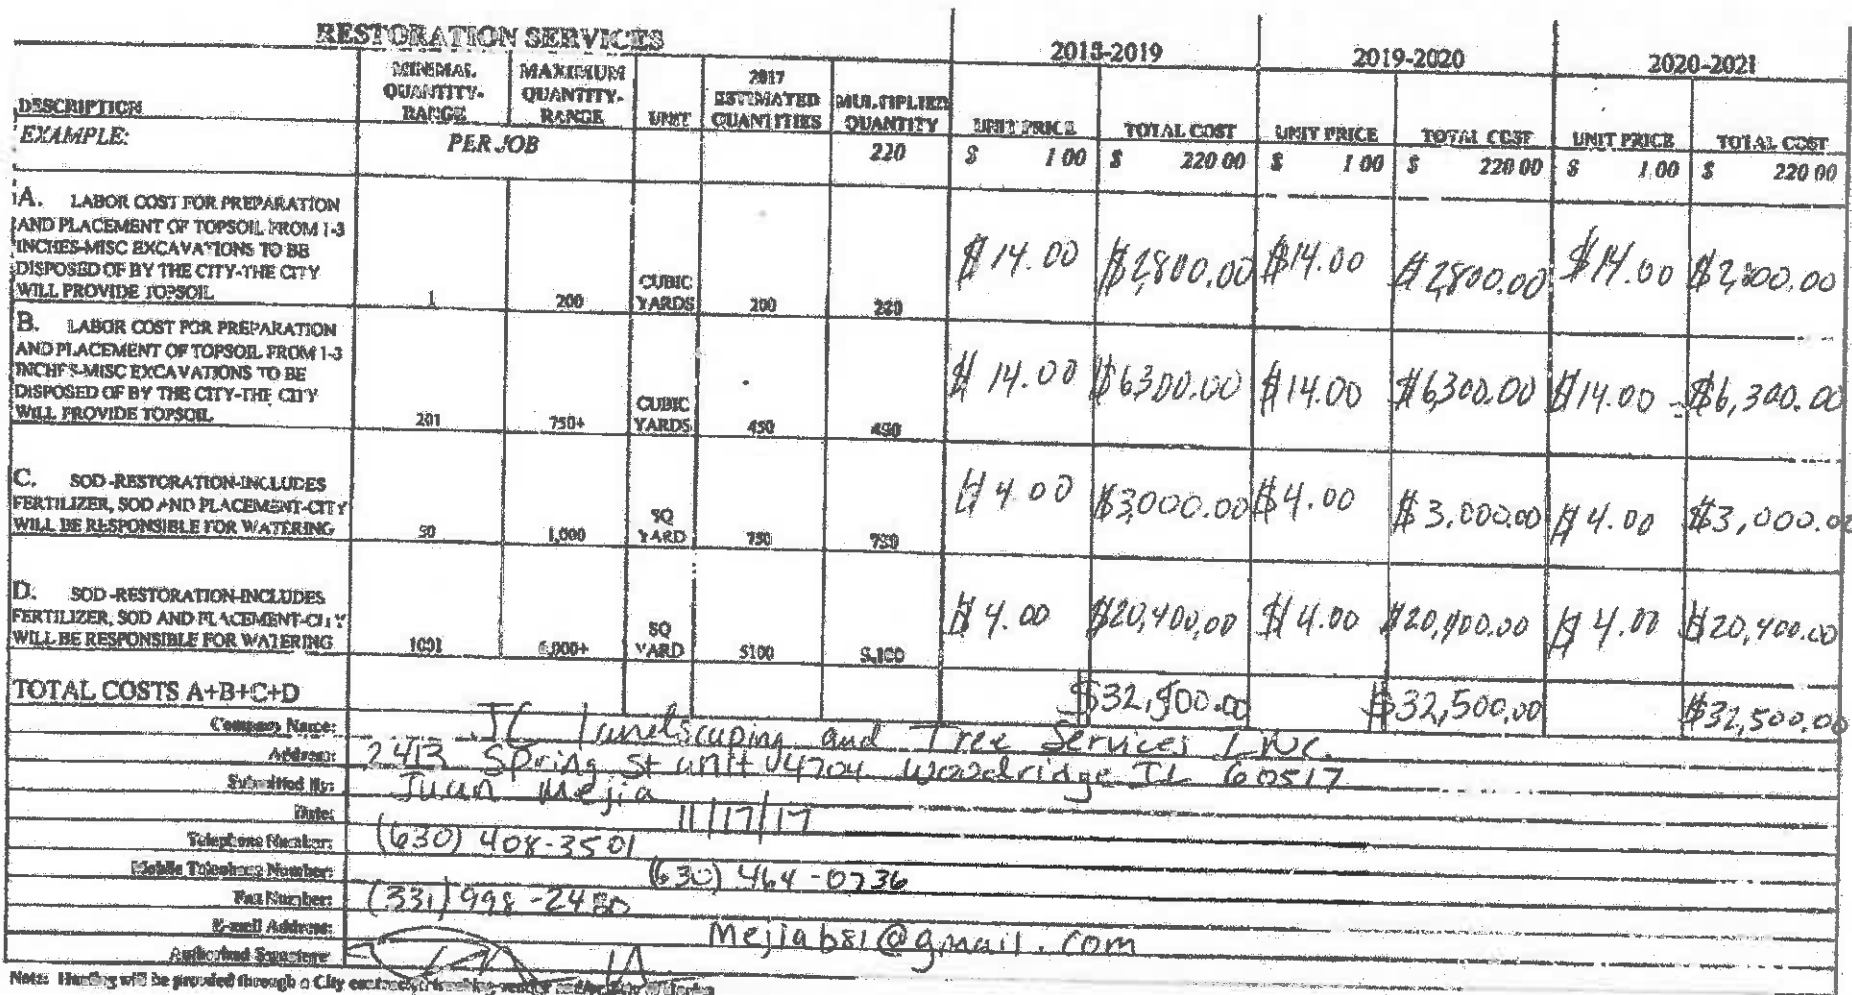 RESTORATION SERVICES
2018-2019 2019-2020 2020-2021
DESCRIPTION MINIMAL QUANTITY-RANGE MAXIMUM QUANTITY-RANGE UNIT 2017 ESTIMATED QUANTITIES MULTIPLIED QUANTITY UNIT PRICE TOTAL COST UNIT PRICE TOTAL COST UNIT PRICE TOTAL COST
EXAMPLE: PER JOB 220 $ 1 00 $ 220 00 $ 1 00 $ 220 00 $ 1.00 $ 220 00
A. LABOR COST FOR PREPARATION
AND PLACEMENT OF TOPSOIL FROM 1-3
INCHES-MISC EXCAVATIONS TO BE
DISPOSED OF BY THE CITY-THE CITY
WILL PROVIDE TOPSOIL 1 200 CUBIC YARDS 200 220 $14.00 $2,800.00 $14.00 $2,800.00 $14.00 $2,800.00
B. LABOR COST FOR PREPARATION
AND PLACEMENT OF TOPSOIL FROM 1-3
INCHES-MISC EXCAVATIONS TO BE
DISPOSED OF BY THE CITY-THE CITY
WILL PROVIDE TOPSOIL 201 750+ CUBIC YARDS 450 450 $14.00 $6,300.00 $14.00 $6,300.00 $14.00 $6,300.00
C. SOD-RESTORATION-INCLUDES
FERTILIZER, SOD AND PLACEMENT-CITY
WILL BE RESPONSIBLE FOR WATERING 50 1,000 SQ YARD 750 750 $4.00 $3,000.00 $4.00 $3,000.00 $4.00 $3,000.00
D. SOD-RESTORATION-INCLUDES
FERTILIZER, SOD AND PLACEMENT-CITY
WILL BE RESPONSIBLE FOR WATERING 1001 6,000+ SQ YARD 5100 5,100 $4.00 $20,400.00 $4.00 $20,400.00 $4.00 $20,400.00
TOTAL COSTS A+B+C+D $32,500.00 $32,500.00 $32,500.00
Company Name: JC Landscaping and Tree Services INC.
Address: 2413 Spring St unit 4704 Woodridge IL 60517
Submitted By: Juan Mejia
Date: 11/17/17
Telephone Number: (630) 408-3501
Mobile Telephone Number: (630) 464-0736
Fax Number: (331) 998-2480
E-mail Address: Mejiab81@gmail.com
Authorized Signature:
Note: Hauling will be provided through a City